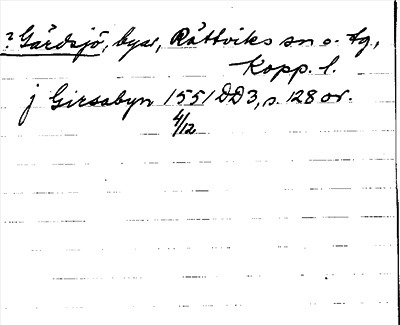 ? Gärdsjö, byar, Rättviks sn o. tg,
Kopp. l.
j Girsabyn 1551 DD3, s. 128 or.
4/12